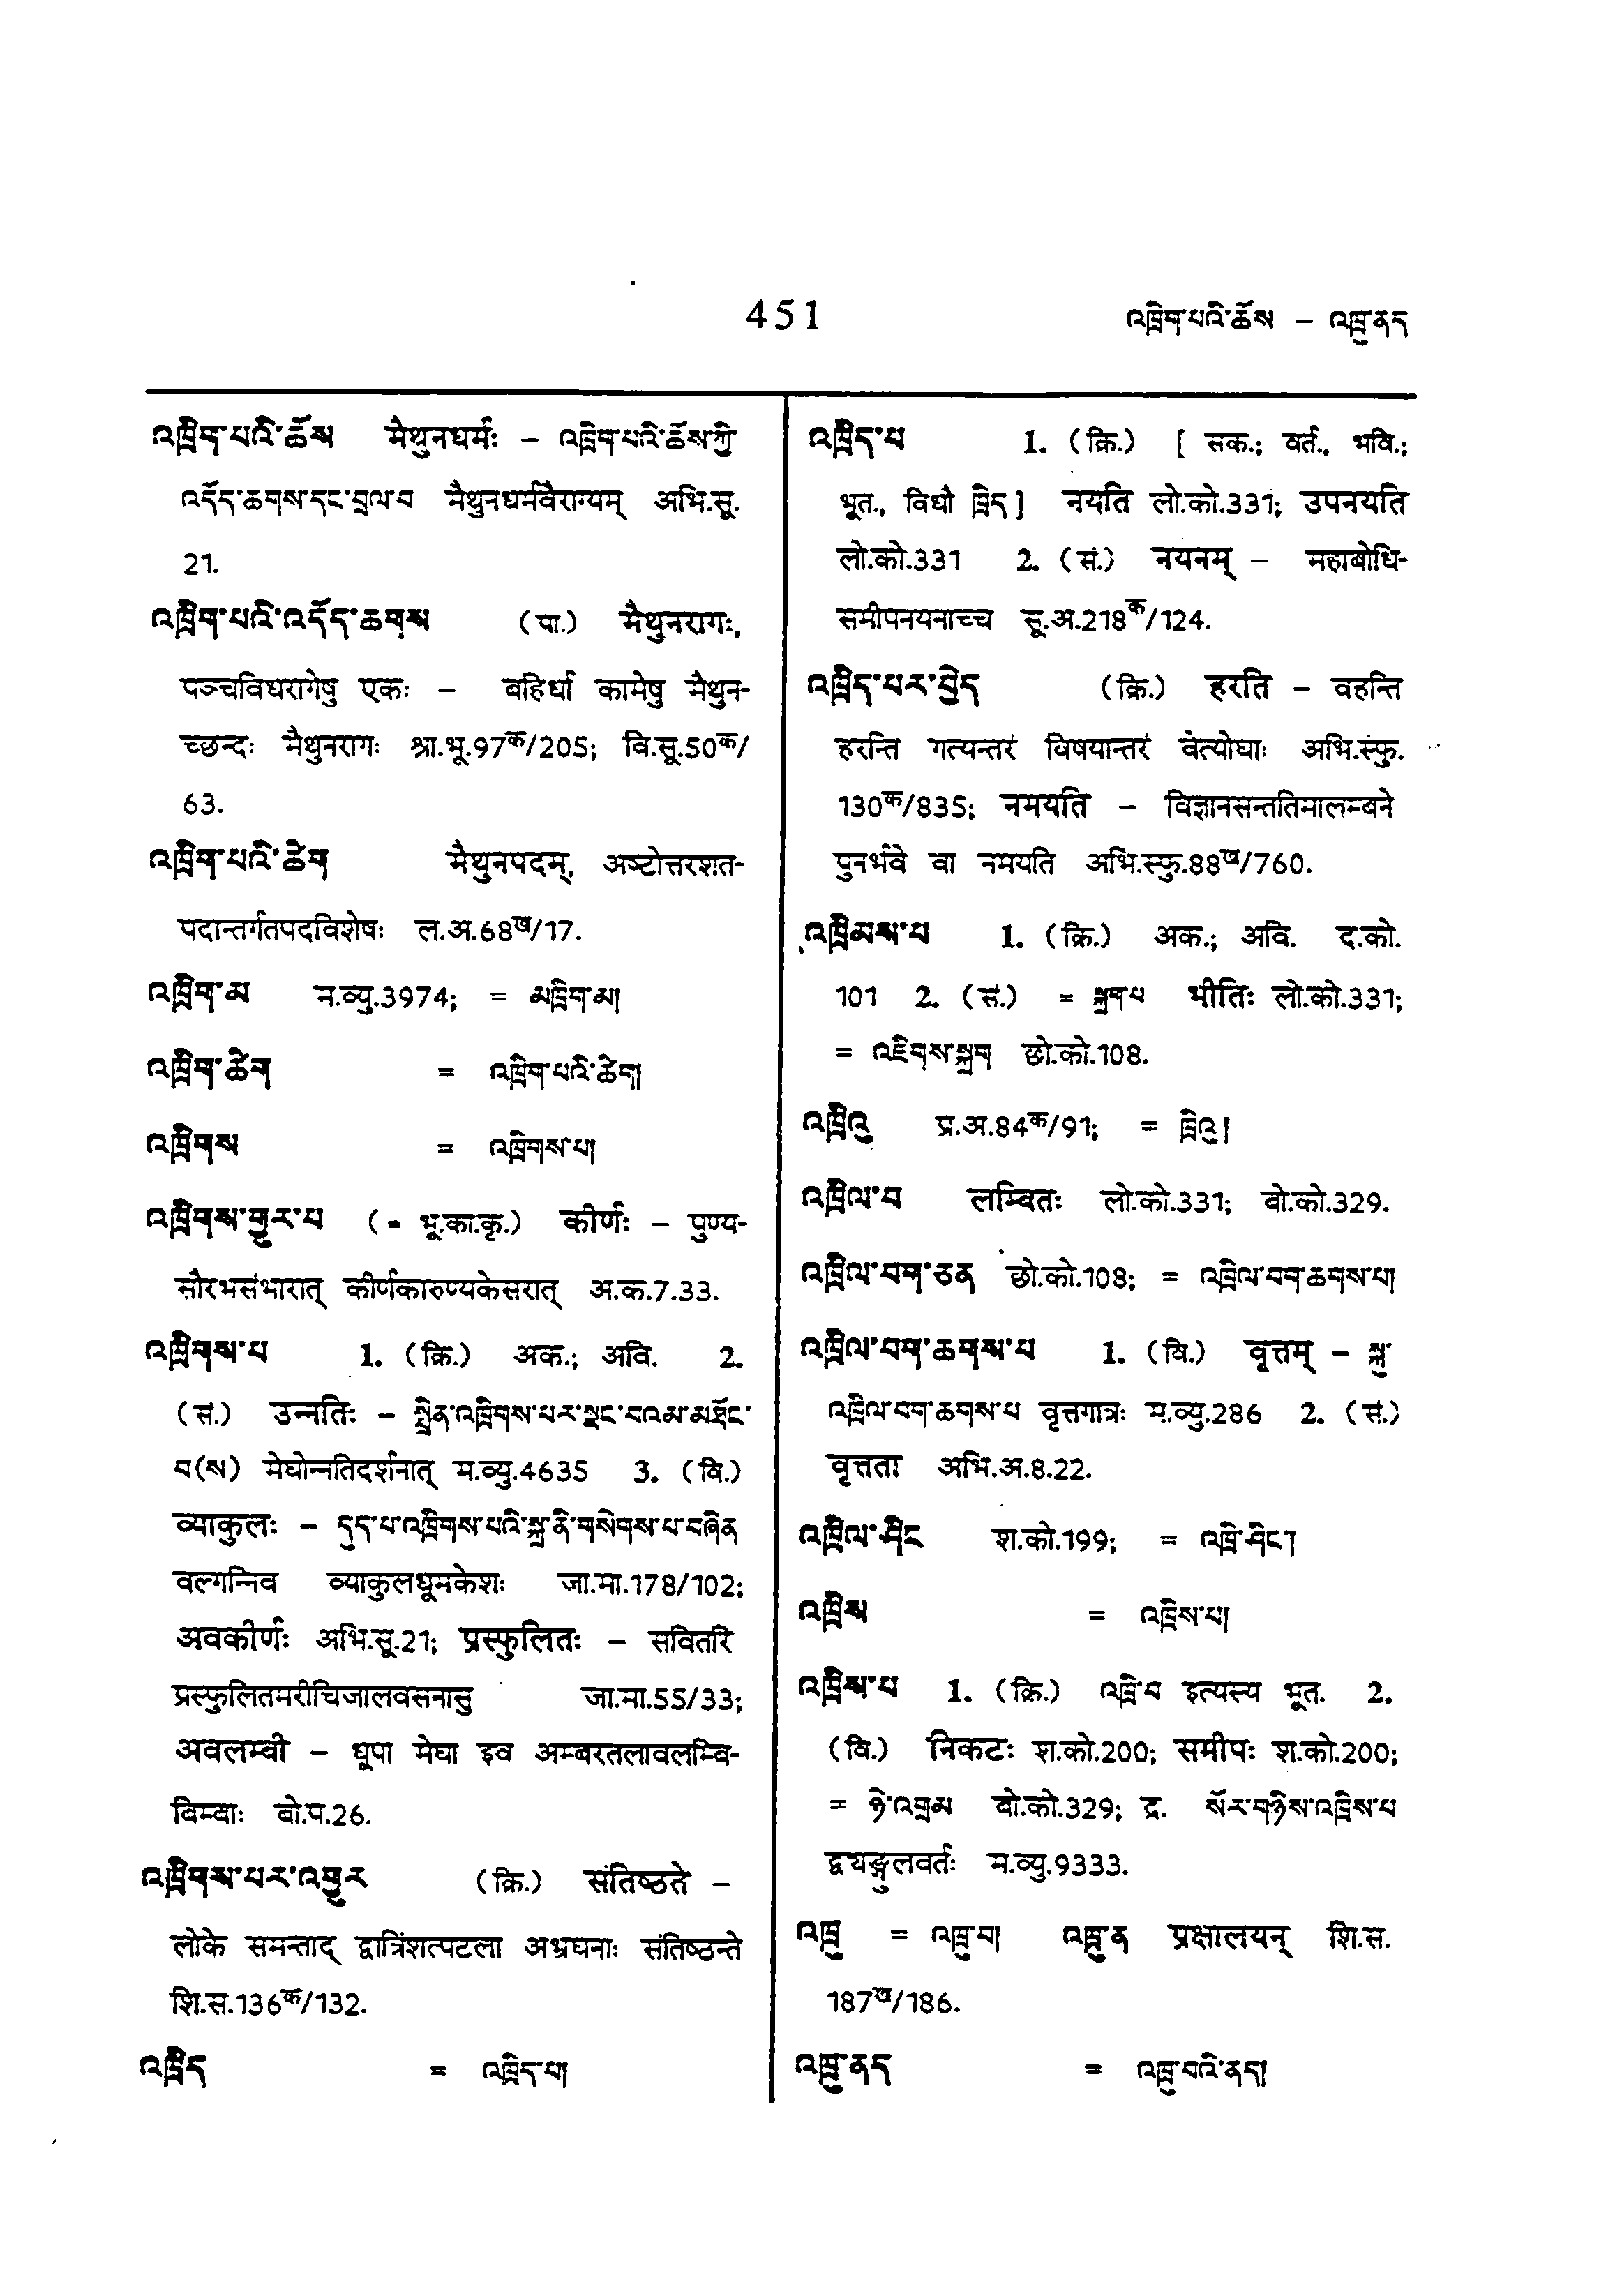 451
འཁྲིག་པའི་ཆོས – འཁྲུ་ནད
འཁྲིག་པའི་ཆོས मैथुनधर्मः – འཁྲིག་པའི་ཆོས་ཀྱི་
འདོད་ཆགས་དང་བྲལ་བ मैथुनधर्मवैराग्यम् अभि.सू.
21.
འཁྲིག་པའི་འདོད་ཆགས (पा.) मैथुनरागः,
पञ्चविधरागेषु एकः – बहिर्धा कामेषु मैथुन-
च्छन्दः मैथुनरागः श्रा.भू.97क/205; वि.सू.50क/
63.
འཁྲིག་པའི་ཚེག मैथुनपदम्, अष्टोत्तरशत-
पदान्तर्गतपदविशेषः ल.अ.68ख/17.
འཁྲིག་མ म.व्यु.3974; = མཁྲིག་མ།
འཁྲིག་ཚེག = འཁྲིག་པའི་ཚེག།
འཁྲིགས = འཁྲིགས་པ།
འཁྲིགས་གྱུར་པ (= भू.का.कृ.) कीर्णः – पुण्य-
सौरभसंभारात् कीर्णकारुण्यकेसरात् अ.क.7.33.
འཁྲིགས་པ 1. (क्रि.) अक.; अवि. 2.
(सं.) उन्नतिः – སྤྲིན་འཁྲིགས་པར་སྣང་བའམ་མཐོང་
བ(ས) मेघोन्नतिदर्शनात् म.व्यु.4635 3. (वि.)
व्याकुलः – དུད་པ་འཁྲིགས་པའི་སྐྲ་ནི་གསེགས་པ་བཞིན
वल्गन्निव व्याकुलधूमकेशः जा.मा.178/102;
अवकीर्णः अभि.सू.21; प्रस्फुलितः – सवितरि
प्रस्फुलितमरीचिजालवसनासु जा.मा.55/33;
अवलम्बी – धूपा मेघा इव अम्बरतलावलम्बि-
बिम्बाः बो.प.26.
འཁྲིགས་པར་འགྱུར (क्रि.) संतिष्ठते –
लोके समन्ताद् द्वात्रिंशत्पटला अभ्रघनाः संतिष्ठन्ते
शि.स.136क/132.
འཁྲིད = འཁྲིད་པ།
འཁྲིད་པ 1. (क्रि.) [ सक.; वर्त., भवि.;
भूत., विधौ ཁྲིད] नयति लो.को.331; उपनयति
लो.को.331 2. (सं.) नयनम् – महाबोधि-
समीपनयनाच्च सू.अ.218क/124.
འཁྲིད་པར་བྱེད (क्रि.) हरति – वहन्ति
हरन्ति गत्यन्तरं विषयान्तरं वेत्योघाः अभि.स्फु.
130क/835; नमयति – विज्ञानसन्ततिमालम्बने
पुनर्भवे वा नमयति अभि.स्फु.88ख/760.
འཁྲིམས་པ 1. (क्रि.) अक.; अवि. द.को.
101 2. (सं.) = སྐྲག་པ भीतिः लो.को.331;
= འཇིགས་སྐྲག छो.को.108.
འཁྲིའུ प्र.अ.84क/91; = ཁྲིའུ།
འཁྲིལ་བ लम्बितः लो.को.331; बो.को.329.
འཁྲིལ་བག་ཅན छो.को.108; = འཁྲིལ་བག་ཆགས་པ།
འཁྲིལ་བག་ཆགས་པ 1. (वि.) वृत्तम् – སྐུ་
འཁྲིལ་བག་ཆགས་པ वृत्तगात्रः म.व्यु.286 2. (सं.)
वृत्तता अभि.अ.8.22.
འཁྲིལ་ཤིང श.को.199; = འཁྲི་ཤིང།
འཁྲིས = འཁྲིས་པ།
འཁྲིས་པ 1. (क्रि.) འཁྲི་བ इत्यस्य भूत. 2.
(वि.) निकटः श.को.200; समीपः श.को.200;
= ཉེ་འགྲམ बो.को.329; द्र. སོར་གཉིས་འཁྲིས་པ
द्वयङ्गुलवर्तः म.व्यु.9333.
འཁྲུ = འཁྲུ་བ། འཁྲུ་ན प्रक्षालयन् शि.स.
187ख/186.
འཁྲུ་ནད = འཁྲུ་བའི་ནད།